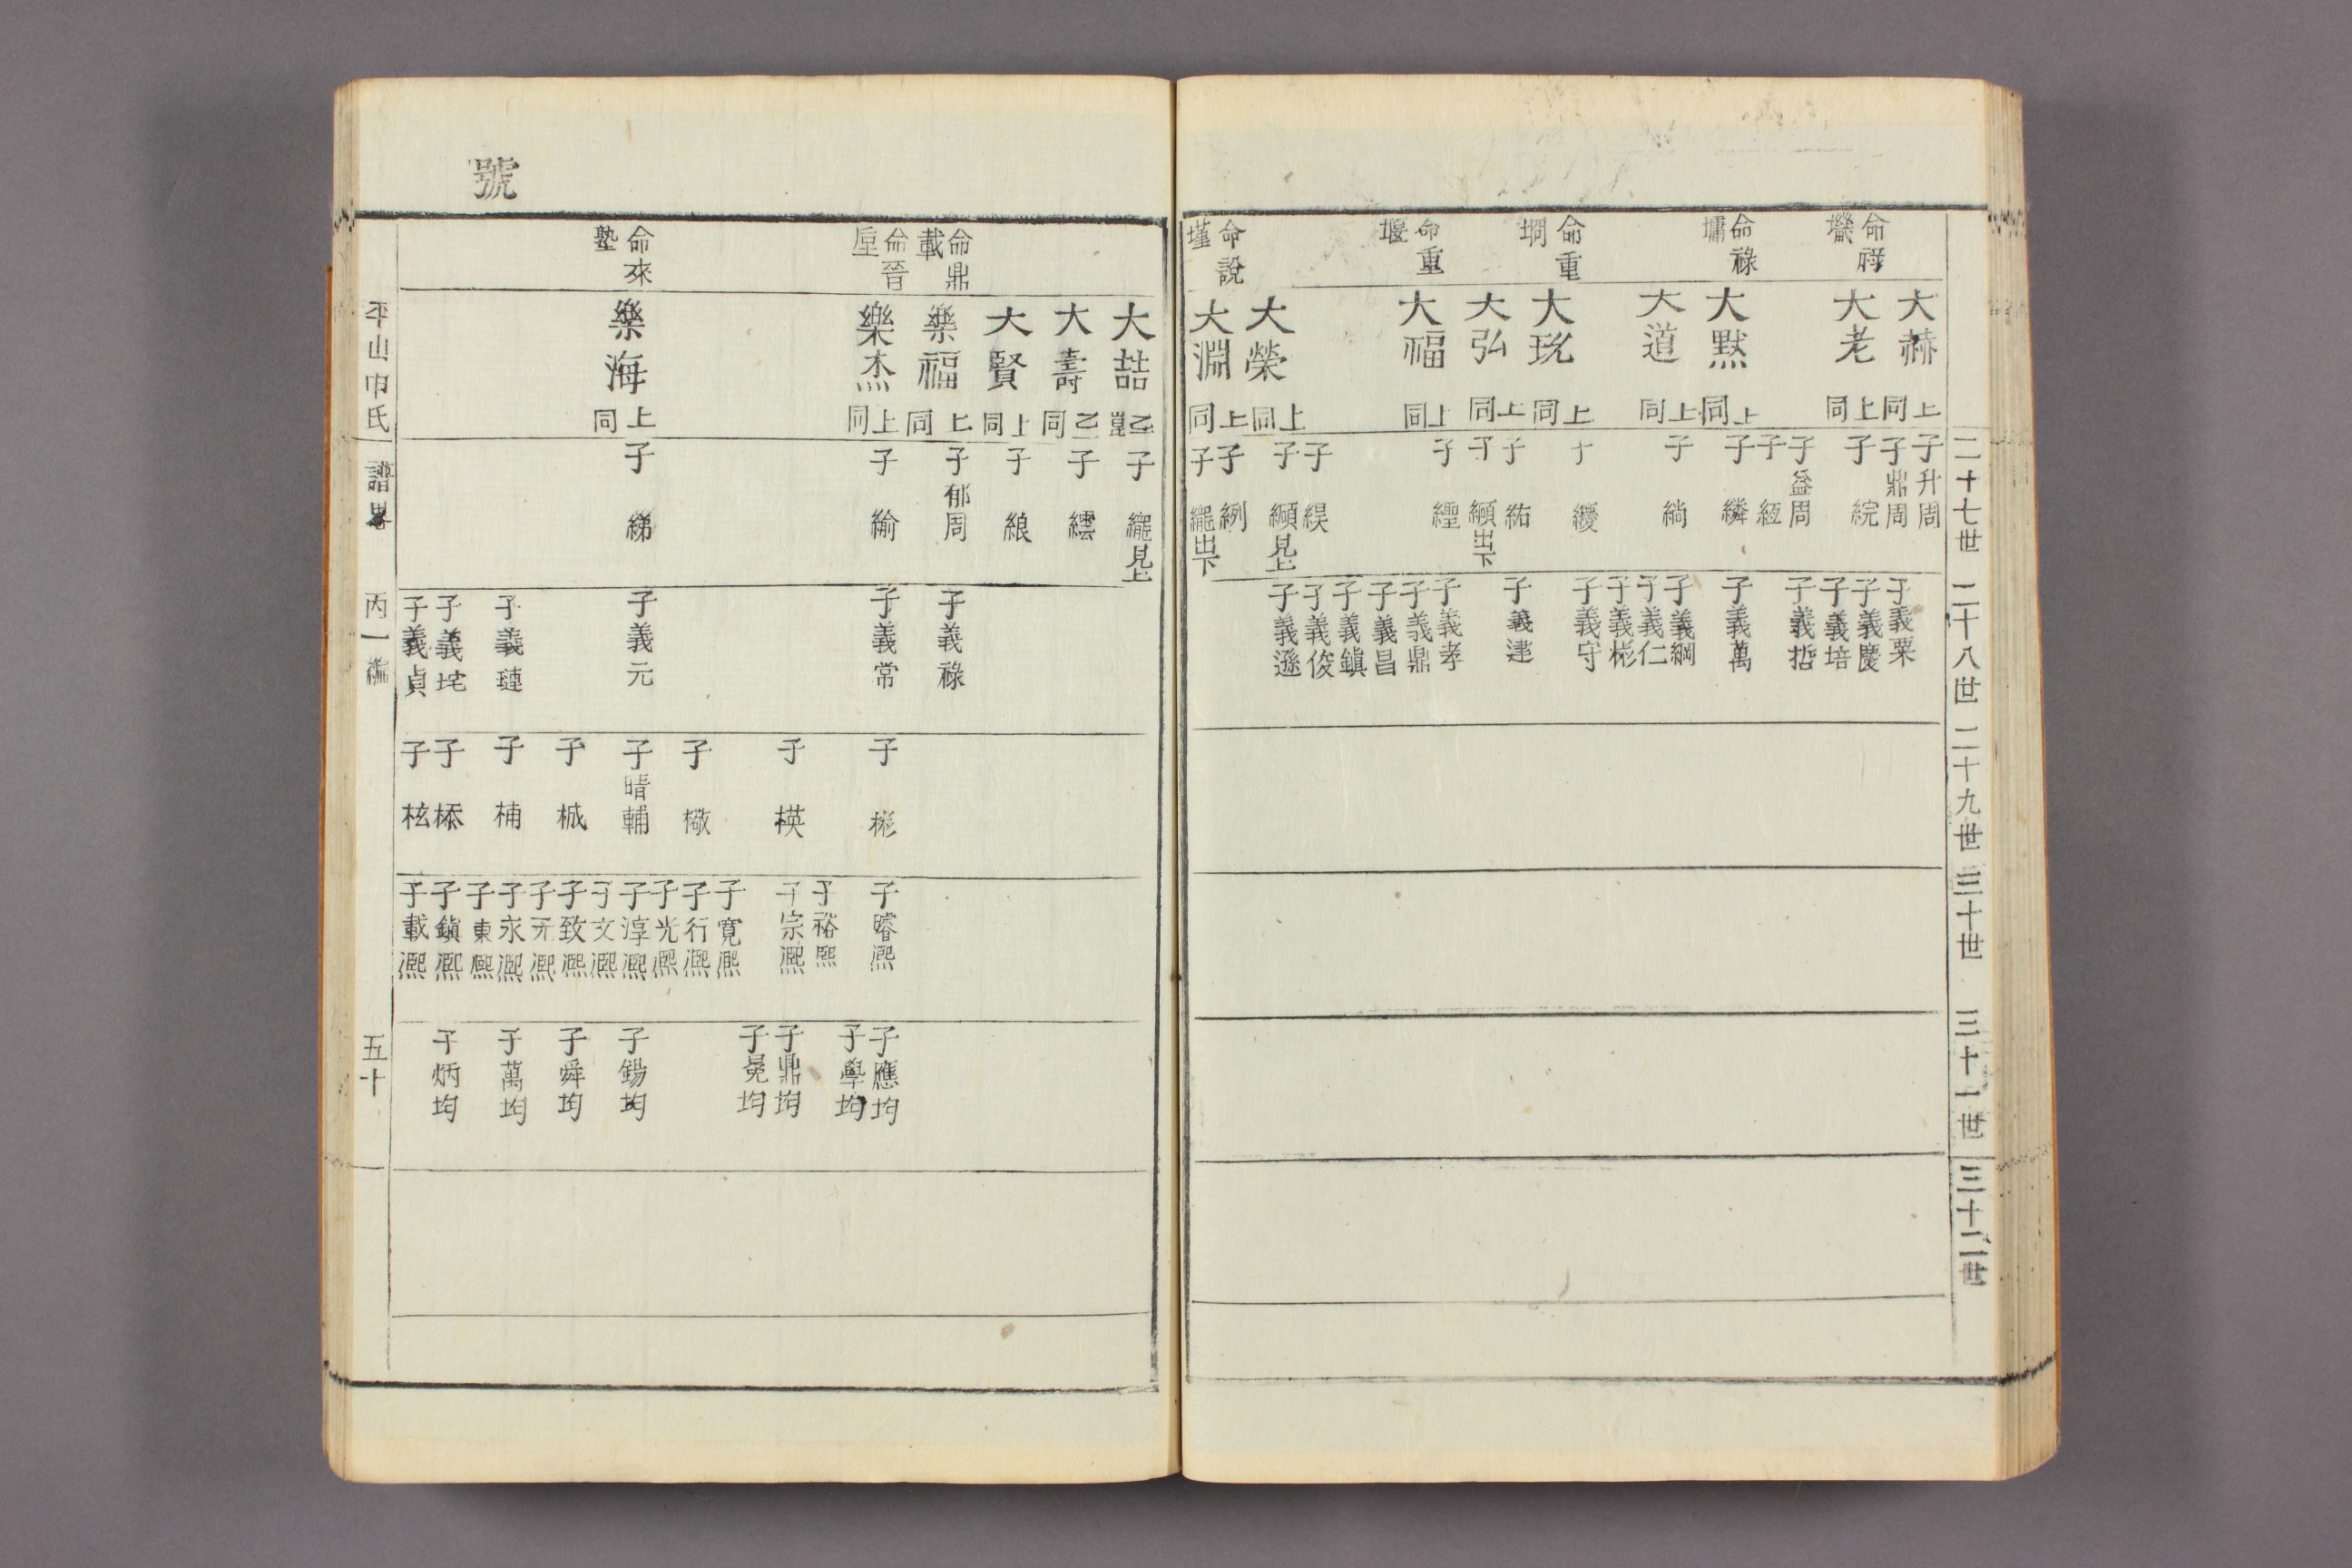 二十七世
二十八世
二十九世
三十世
三十一世
三十二世
命祥
命祿
墉
命重
堈
命重
堰
命說
墐
大赫
上同
大老
上同
大默
上同
大道
上同
大珗
上同
大弘
上同
大福
上同
大榮
上同
大淵
上同
子升周
子鼎周
子綄
子益周
子絚
子繗
子綃
子纋
子紘
子纐出下
子緸
子緓
子纐見上
子綛
子纚出下
子義栗
子義慶
子義培
子義哲
子義萬
子義綱
子義仁
子義彬
子義守
子義建
子義孝
子義鼎
子義昌
子義鎭
子義俊
子義遜
號
命鼎
載
命晉
垕
命來
塾
大喆
大壽
大賢
上同
樂福
上同
樂杰
上同
樂海
上同
子纚見上
子繧
子綡
子郁周
子緰
子綈
子義祿
子義常
子義元
子義璉
子義垞
子義貞
子彬
子楧
子橄
子晴輔
子樴
子楠
子㮇
子柭
子睿熙
子裕熙
子宗熙
子寬熙
子行熙
子光熙
子淳熙
子文熙
子致熙
子元熙
子永熙
子東熙
子鎭熙
子載熙
子應均
子學均
子鼎均
子冕均
子錫均
子舜均
子萬均
子炳均
平山申氏
譜畧
丙一編
五十